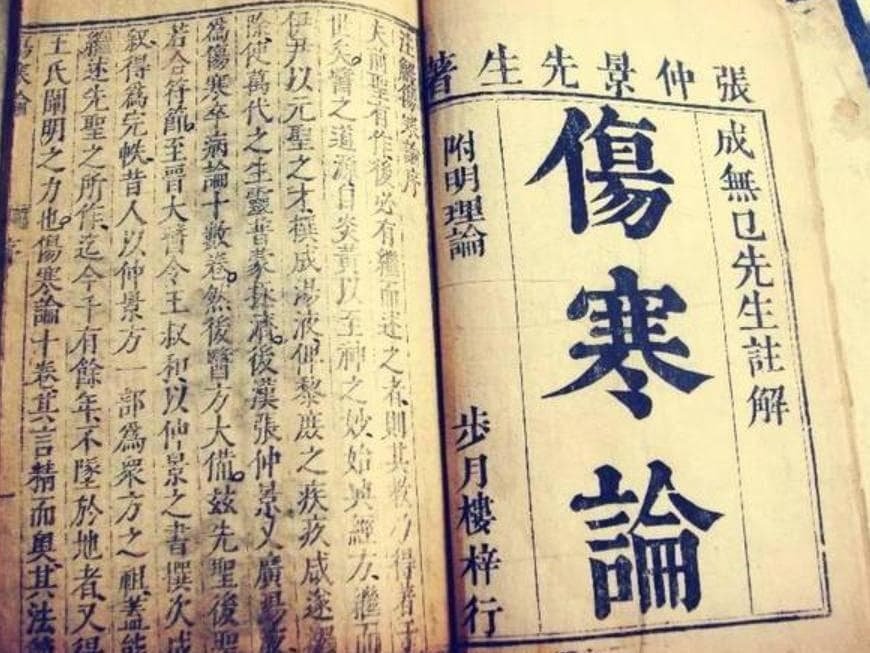 張仲景先生著
成無已先生註解
傷寒論
附明理論
步月樓梓行
注解傷寒論序
夫前聖有作後必有繼而述之者則其教乃得著于
世矣醫之道源自炎黃以至神之妙始興經方繼而
伊尹以元聖之才撰成湯液俾黎庶之疾疢咸遂蠲
除使萬代之生靈普蒙拯濟後漢張仲景又廣湯液
為傷寒卒病論十數卷。然後醫方大備。茲先聖後聖
若合符節。至晉大醫令王叔和以仲景之書撰次成
敘得為完帙昔人以仲景方一部為衆方之祖蓋能
繼述先聖之所作迄今千有餘年不墜於地者又得
王氏闡明之力也。傷寒論十卷其言精而奥其法
傷寒論